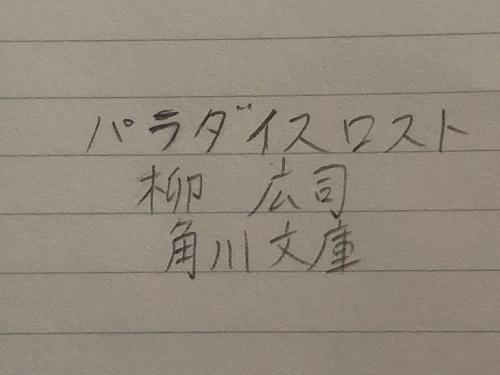 パラダイスロスト
柳 広司
角川文庫